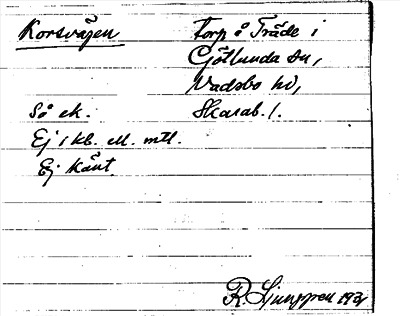 Korsvägen
Torp å Träde i
Götlunda sn,
Vadsbo hd,
Skarab. l.
Så ek.
Ej i kb. ell. mtl.
Ej känt.
R. Ljunggren 1931